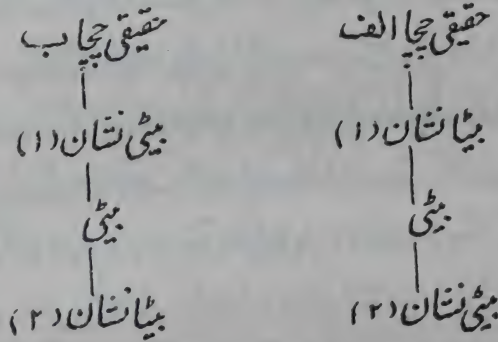 حقیقی چچا الف
بیٹا نشان (۱)
بیٹی
بیٹی نشان (۲)
حقیقی چچا ب
بیٹی نشان (۱)
بیٹی
بیٹا نشان (۲)